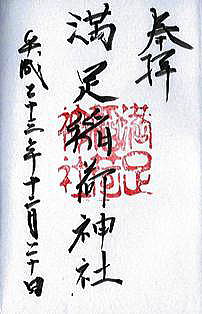 奉拝
満足稲荷神社
満足
稲荷
神社
平成二十三年十二月二十日